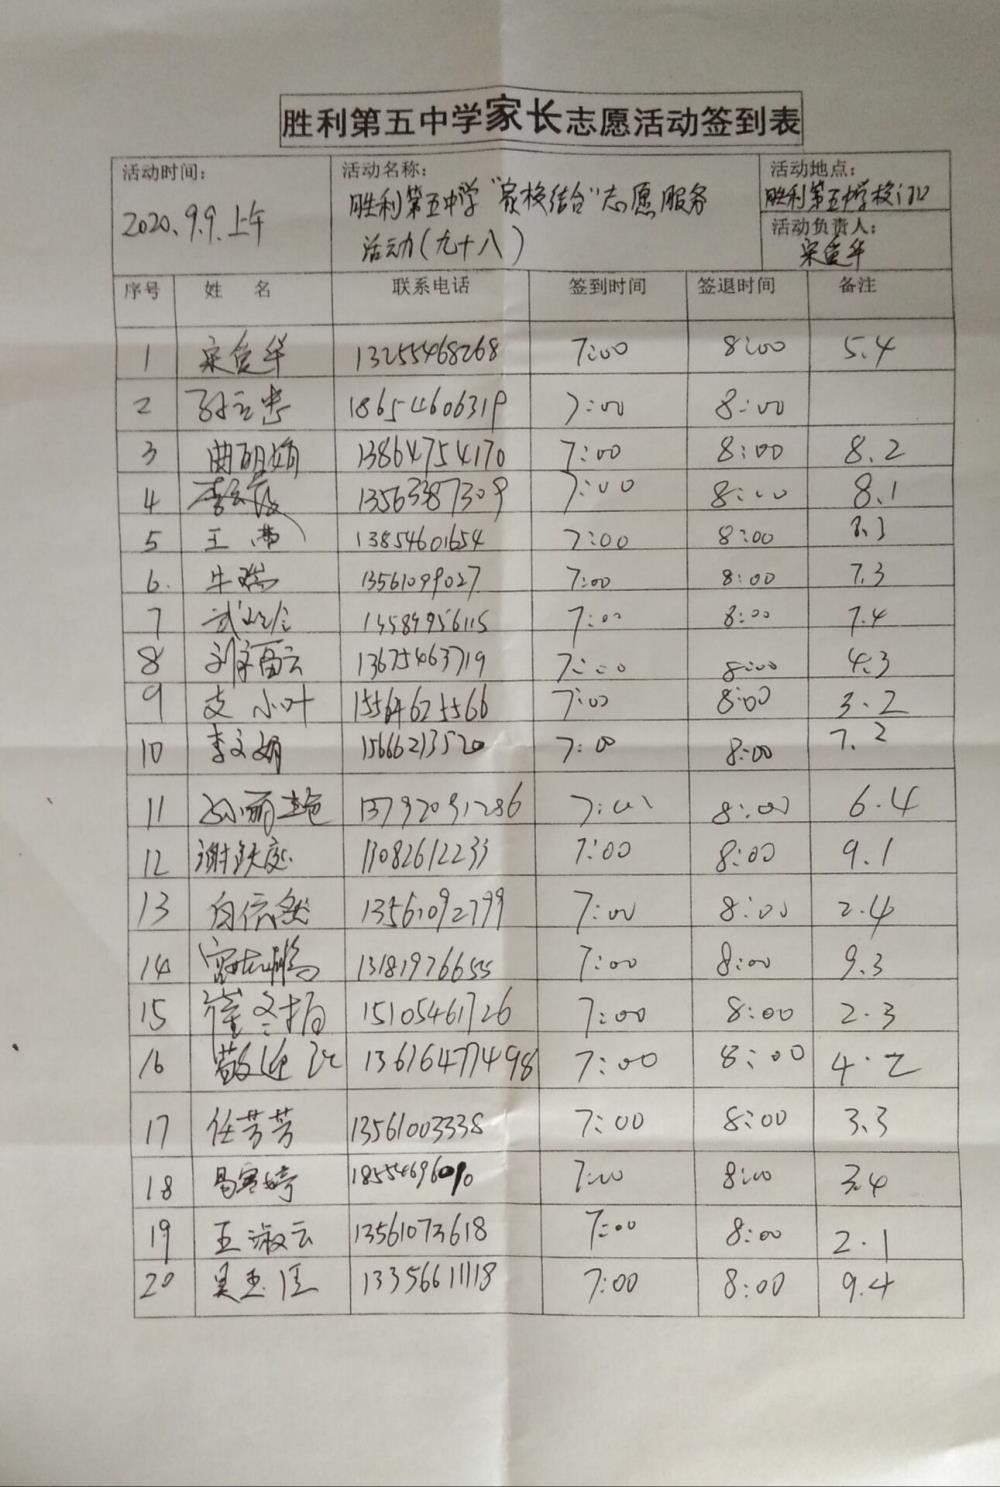 胜利第五中学家长志愿活动签到表
活动时间: 活动名称: 活动地点:
2020.9.9.上午 胜利第五中学“家校结合”志愿服务 胜利第五中学校门口
活动(九十八) 活动负责人:
序号 姓 名 联系电话 签到时间 签退时间 备注
1 13255468268 7:00 8:00 5.4
2 18654606319 7:00 8:00
3 曲明娟 13864754170 7:00 8:00 8.2
4 13563387309 7:00 8:00 8.1
5 王 13854601654 7:00 8:00
6. 牛瑞 13561099027 7:00 8:00 7.3
7 7:00 8:00 7.4
8 13675463719 7:00 8:00 4.3
9 支小叶 15564625566 7:00 8:00 3.2
10 李文娟 15666213520 7:00 8:00 7.2
11 孙丽艳 13792091286 7:00 8:00 6.4
12 7:00 8:00 9.1
13 13561092799 7:00 8:00 2.4
14 13181976655 7:00 8:00 9.3
15 崔冬梅 15105461726 7:00 8:00 2.3
16 7:00 8:00 4.2
17 任芳芳 13561003338 7:00 8:00 3.3
18 7:00 8:00 3.4
19 王淑云 13561073618 7:00 8:00 2.1
20 13356611118 7:00 8:00 9.4